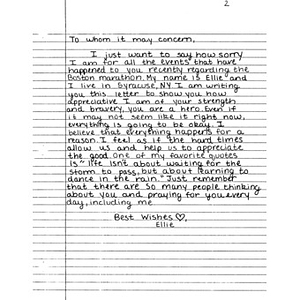 2
To whom it may concern,
I just want to say how sorry
I am for all the events that have
happened to you recently regarding the
Boston marathon. My name is Ellie and
I live in Syracuse, NY. I am writing
you this letter to show you how
appreciative I am of your strength
and bravery, you are a hero. Even if
it may not seem like it right now,
everything is going to be okay. I
believe that everything happens for a
reason. I feel as if the hard times
allow us and help us to appreciate
the good. One of my favorite quotes
is "life isn't about waiting for the
storm to pass, but about learning to
dance in the rain." Just remember
that there are so many people thinking
about you and praying for you every
day, including me
Best Wishes ♡,
Ellie